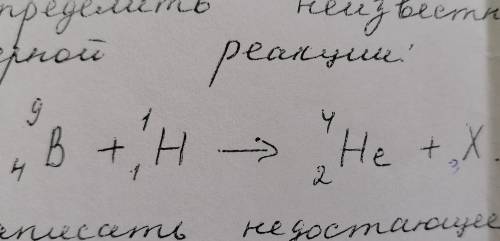 пределить неизвестн
ерной реакции:
⁹₄B + ¹₁H → ⁴₂He + X.
аписать недостающее